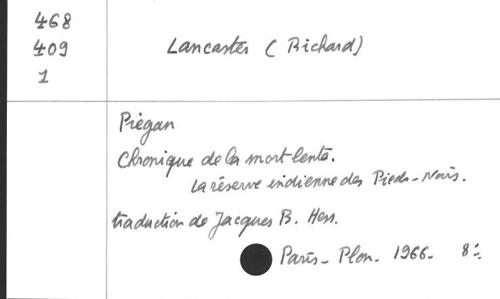 468
409
1
Lancaster (Richard)
Piégan
Chronique de la mort lente.
La réserve indienne des Pieds-Noirs.
traduction de Jacques B. Hess.
Paris - Plon - 1966 - 8º